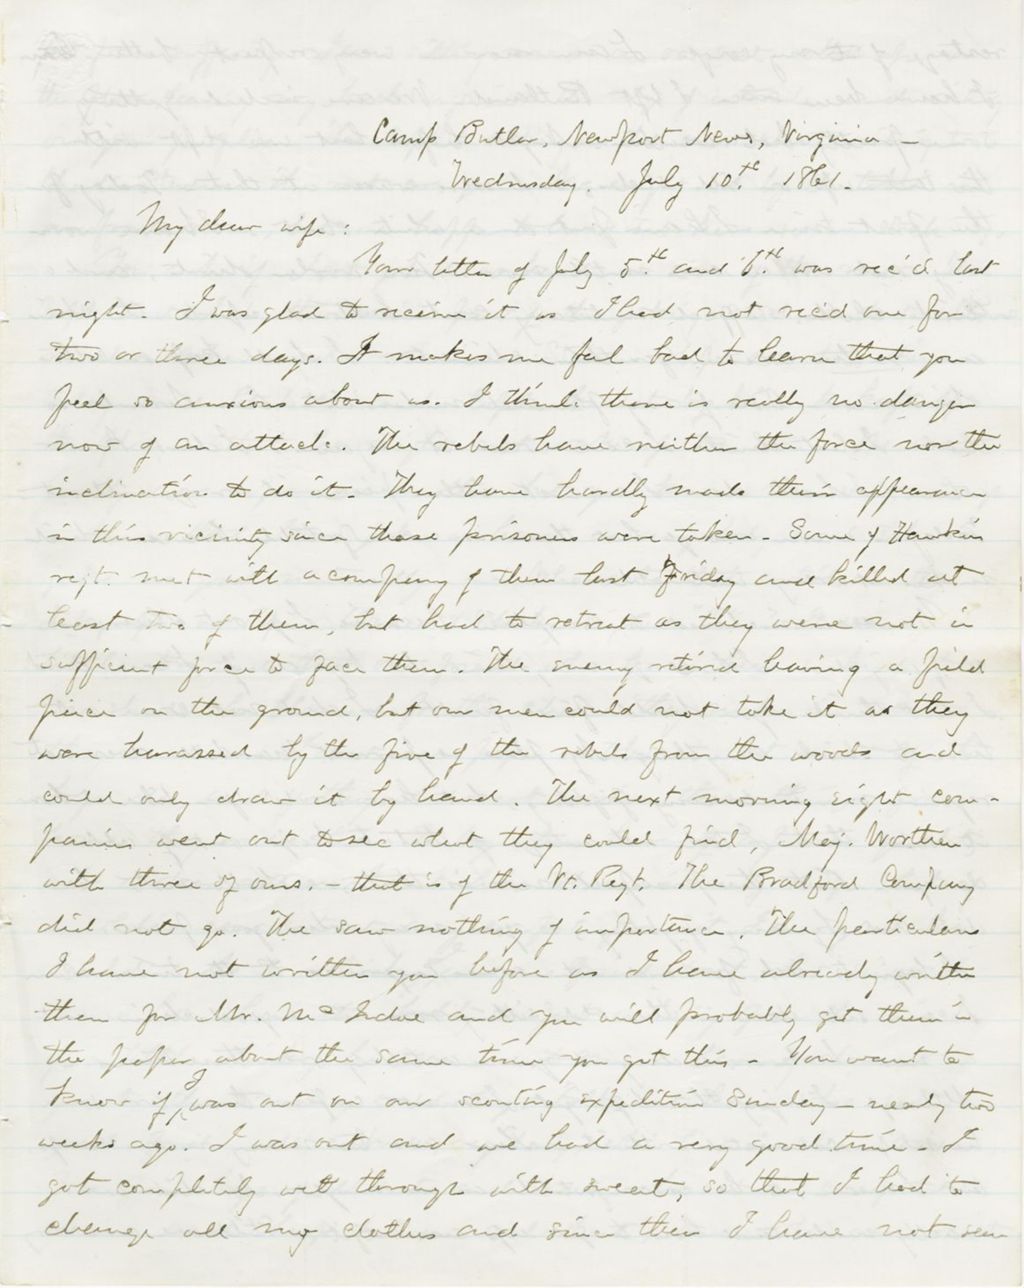 Camp Butler, Newport News, Virginia —
Wednesday. July 10.th 1861.
My dear wife:
Your letter of July 5.th and 6.th was rec'd last
night. I was glad to receive it as I had not rec'd one for
two or three days. It makes me feel bad to learn that you
feel so anxious about us. I think there is really no danger
now of an attack. The rebels have neither the force nor the
inclination to do it. They have hardly made their appearance
in this vicinity since those prisoners were taken. Some of Hawkins
regt. met with a company of them last Friday and killed at
least two of them, but had to retreat as they were not in
sufficient force to face them. The enemy retired leaving a field
piece on the ground, but our men could not take it as they
were harassed by the fire of the rebels from the woods and
could only draw it by hand. The next morning eight com-
panies went out to see what they could find, Maj. Worthen
with three of ours. — that is of the Vt. Regt. The Bradford Company
did not go. The saw nothing of importance. The particulars
I have not written you before as I have already written
them for Mr. McIndoe and you will probably get them in
the paper about the same time you get this — You want to
know if I was out on our scouting expedition Sunday — nearly two
weeks ago. I was out and we had a very good time — I
got completely wet through with sweat, so that I had to
change all my clothes and since then I have not seen